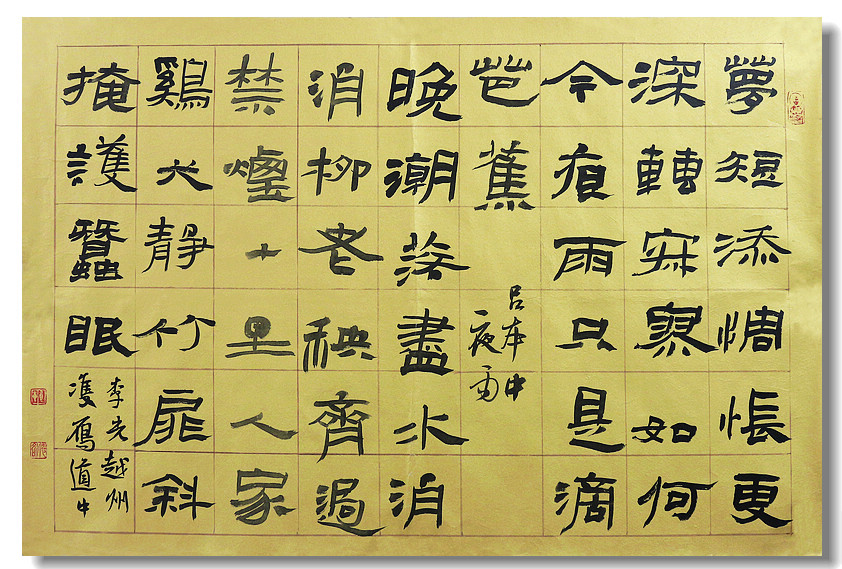 夢短添惆悵更
深轉寂寥如何
今夜雨只是滴
芭蕉
吕本中
夜雨
晚潮落盡水涓
涓柳老秧齊過
禁煙十里人家
鷄犬静竹扉斜
掩護蠶眠
李光越州
雙雁道中